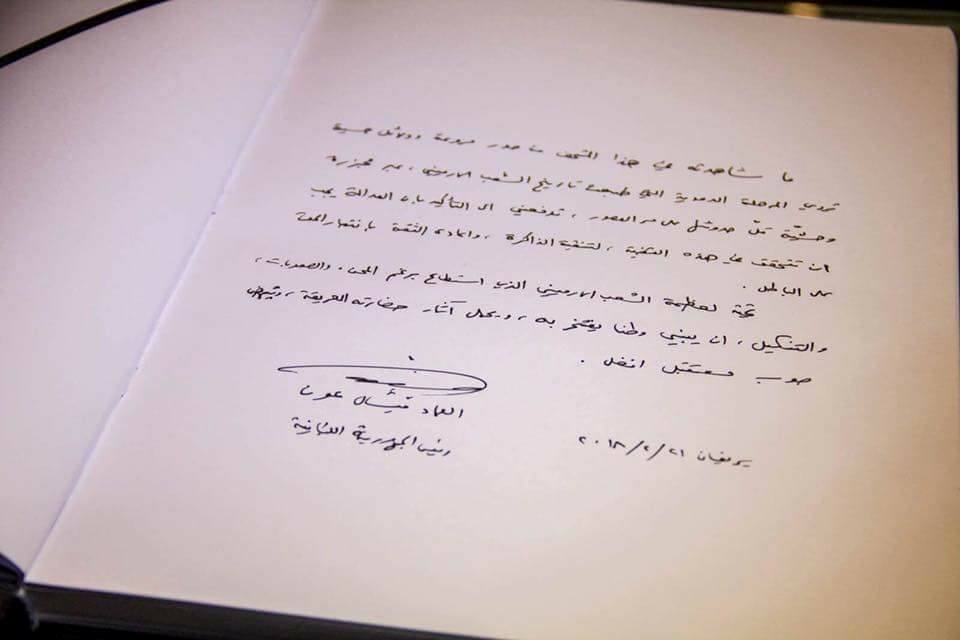 ما شاهدته في هذا المتحف من صور مروعة ودلائل حسية
تروي المرحلة الدموية التي طبعت تاريخ الشعب الارمني، عبر مجزرة
وحشيّة قلّ حدوثها على مر العصور، تدفعني الى التأكيد بان العدالة يجب
ان تتحقق في هذه القضية، لتنقية الذاكرة، واعادة الثقة بإنتصار الحق
على الباطل.
تحية لعظمة الشعب الارمني الذي استطاع برغم المحن، والصعوبات،
والتنكيل، ان يبني وطنا يفتخر به، ويحمل آثار حضارته العريقة،
صوب مستقبل افضل.
العماد ميشال عون
رئيس الجمهورية اللبنانية
يريفان ٢٠١٨/٢/٢١